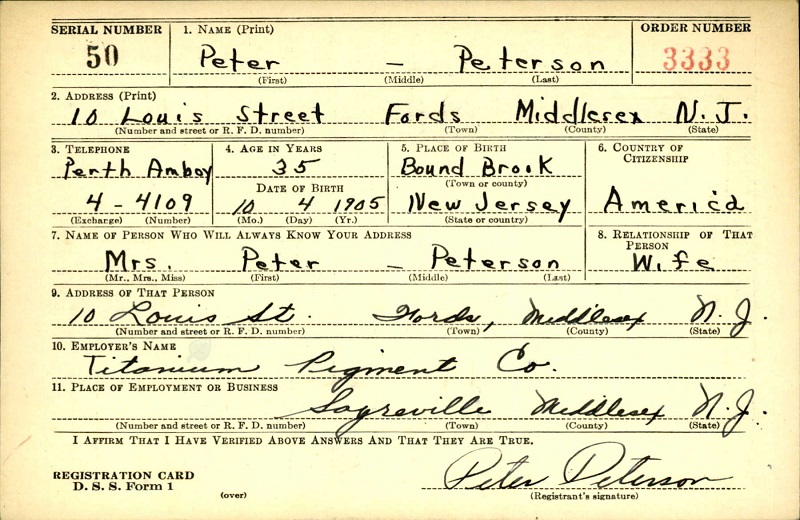 SERIAL NUMBER 1. NAME (Print) ORDER NUMBER
50 Peter — Peterson 3333
(First) (Middle) (Last)
2. ADDRESS (Print)
10 Louis Street Fords Middlesex N.J.
(Number and street or R. F. D. number) (Town) (County) (State)
3. TELEPHONE 4. AGE IN YEARS 5. PLACE OF BIRTH 6. COUNTRY OF CITIZENSHIP
Perth Amboy 35 Bound Brook
DATE OF BIRTH (Town or county)
4-4109 10 4 1905 New Jersey America
(Exchange) (Number) (Mo.) (Day) (Yr.) (State or country)
7. NAME OF PERSON WHO WILL ALWAYS KNOW YOUR ADDRESS 8. RELATIONSHIP OF THAT PERSON
Mrs. Peter — Peterson Wife
(Mr., Mrs., Miss) (First) (Middle) (Last)
9. ADDRESS OF THAT PERSON
10 Louis St. Fords, Middlesex N.J.
(Number and street or R. F. D. number) (Town) (County) (State)
10. EMPLOYER'S NAME
Titanium Pigment Co.
11. PLACE OF EMPLOYMENT OR BUSINESS
Sayreville Middlesex N.J.
(Number and street or R. F. D. number) (Town) (County) (State)
I AFFIRM THAT I HAVE VERIFIED ABOVE ANSWERS AND THAT THEY ARE TRUE.
REGISTRATION CARD
D. S. S. Form 1 (over) Peter Peterson
(Registrant's signature)